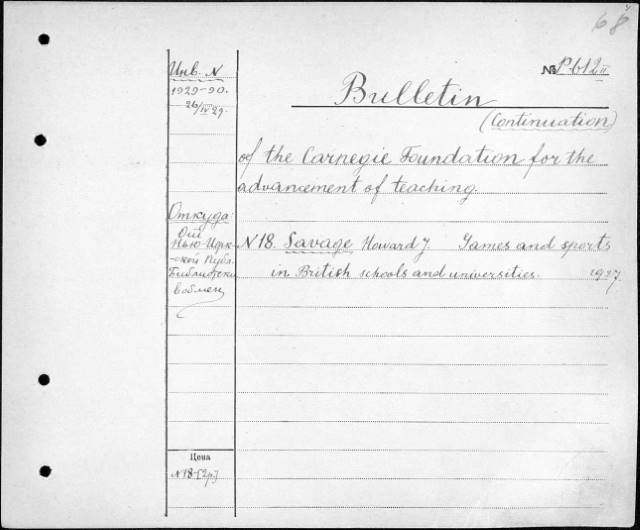 68
Инв. N
1929-90.
26/IV 29.
№ P-612 II
Bulletin
(Continuation)
of the Carnegie Foundation for the
advancement of teaching.
Откуда
Нью-Иорк-
-ской Публ.
Библиотеки
в обмен
N 18. Savage Howard J. Games and sports
in British schools and universities. 1927.
Цена
N 18-[2р]